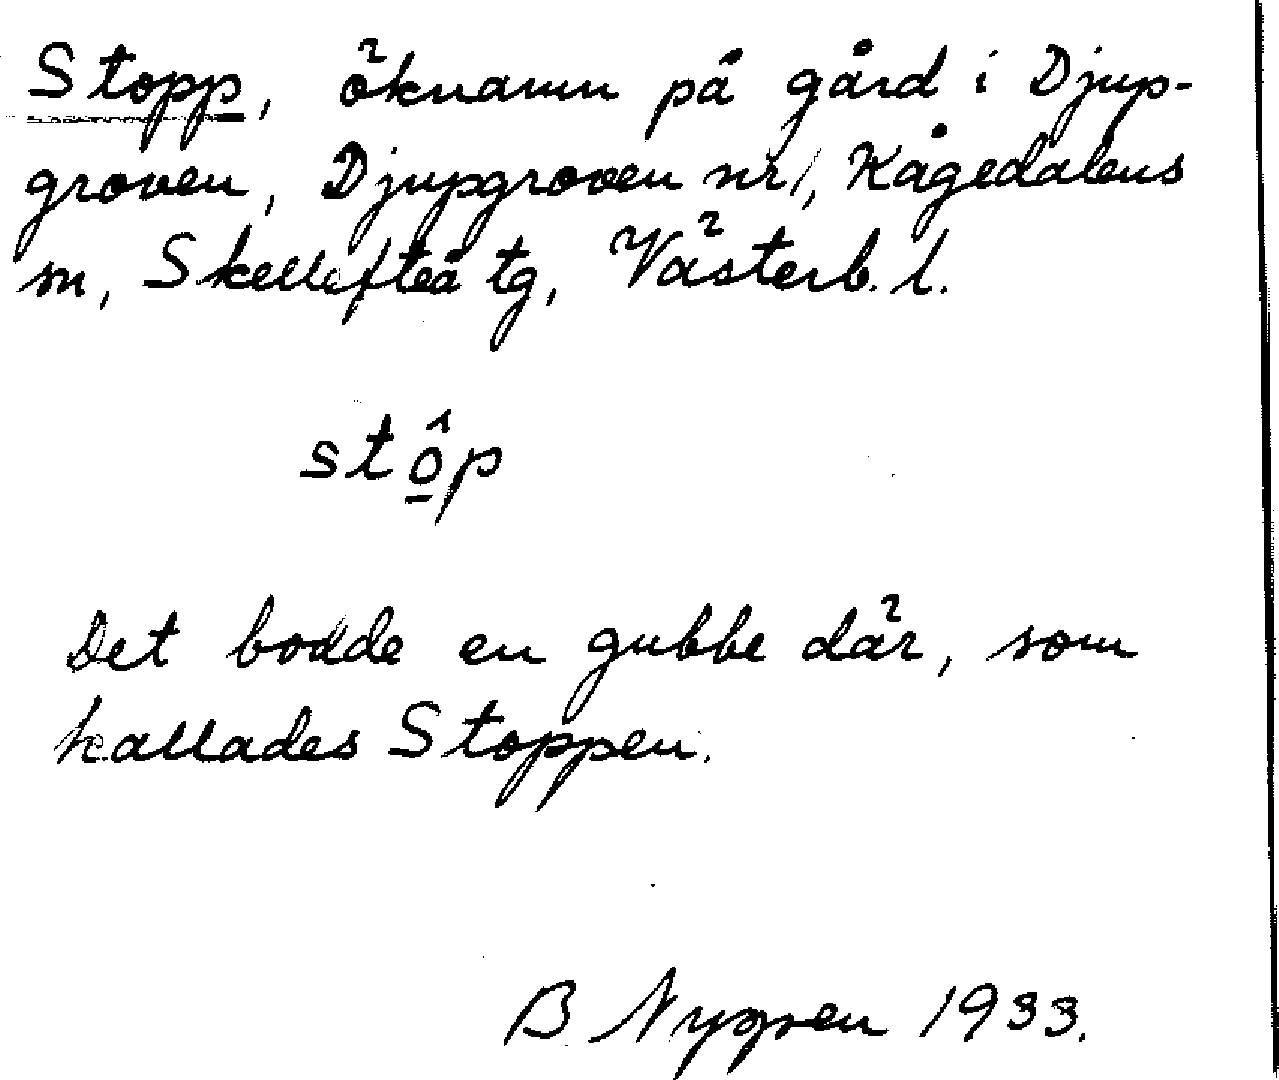 Stopp, öknamn på gård i Djup-
groven, Djupgroven nr 1, Kågedalens
sn, Skellefteå tg, Västerb. l.
stô̱p
Det bodde en gubbe där, som
kallades Stoppen.
B Nygren 1933.